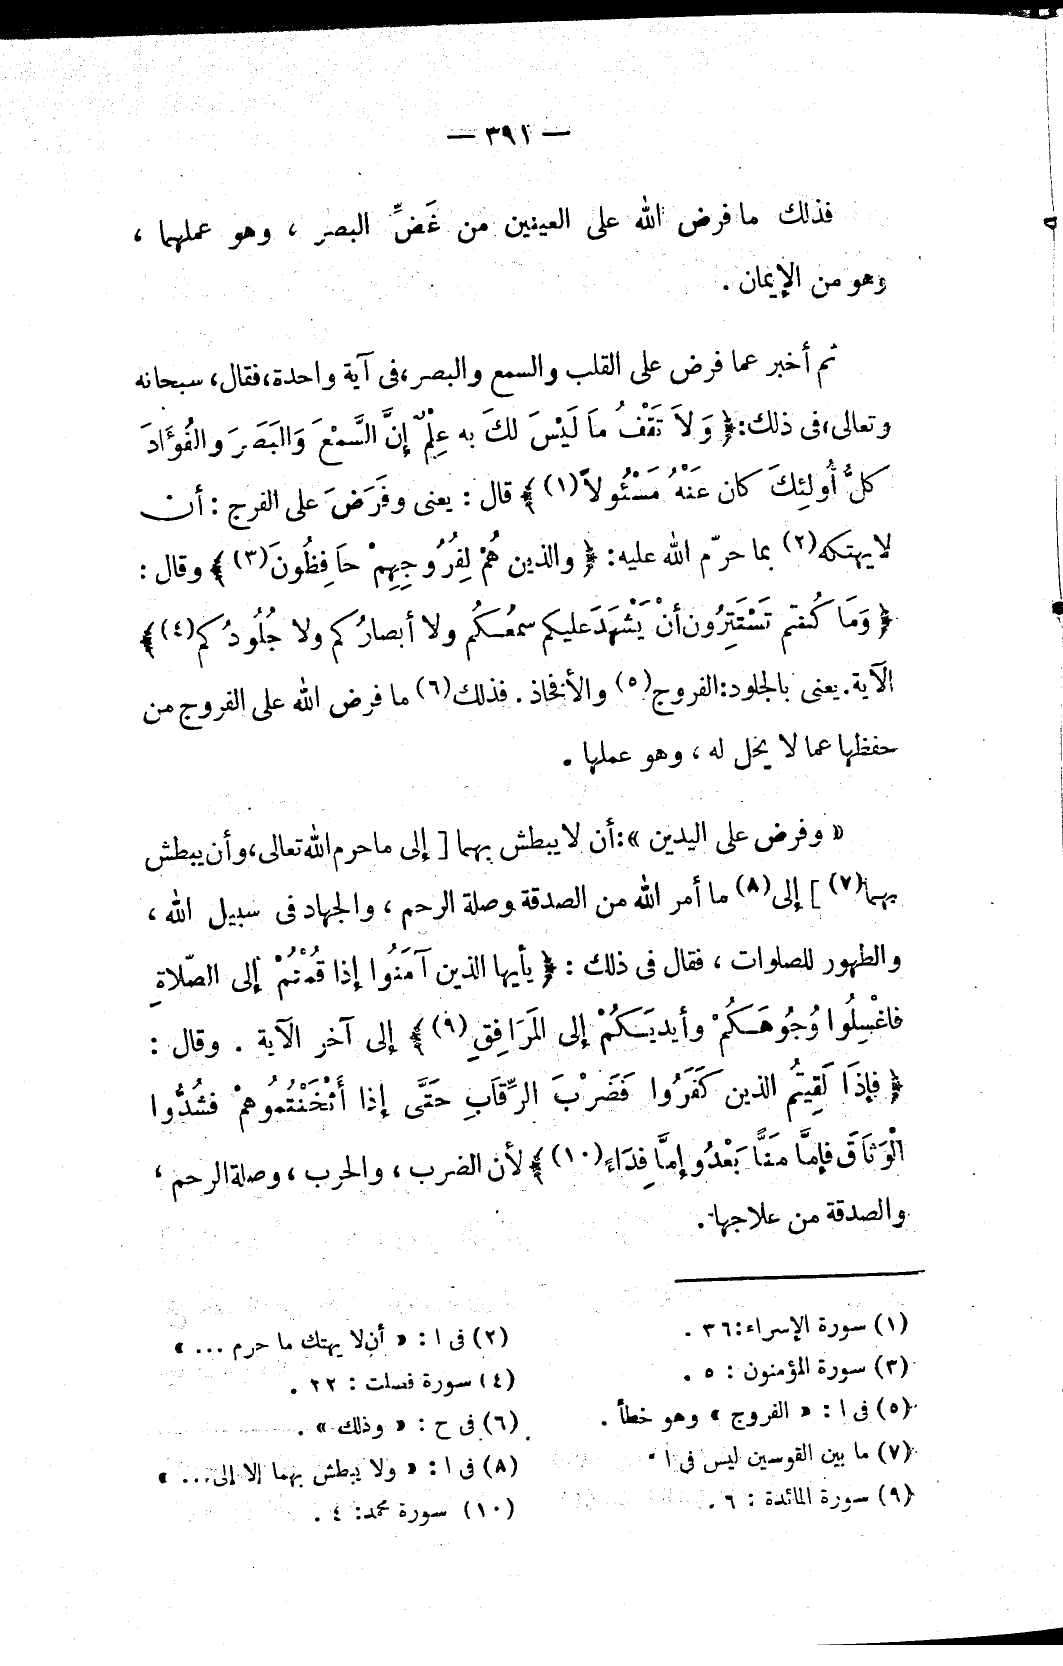 — ٣٩١ —
فذلك ما فرض الله على العينين من غَضِّ البصر ، وهو عملهما ،
وهو من الإيمان .
ثم أخبر عما فرض على القلب والسمع والبصر ،فى آية واحدة،فقال، سبحانه
وتعالى،فى ذلك:﴿ وَلاَ تَقْفُ مَا لَيْسَ لكَ به عِلْمٌ إنَّ السَّمْعَ وَالبَصَرَ والفُؤَادَ
كلُّ أُولئِكَ كان عَنْهُ مَسْئُولاً(١) ﴾ قال : يعنى وفَرَضَ على الفرج : أن
لا يهتكه(٢) بما حرّم الله عليه: ﴿ والذين هُمْ لِفُرُوجِهِمْ حَافِظُونَ(٣) ﴾ وقال :
﴿ وَمَا كُنتم تَسْتَتِرُون أنْ يَشْهَدَ عليكم سمعُكُم ولا أبصارُكم ولا جُلُودُكم(٤) ﴾
الآية. يعنى بالجلود: الفروج(٥) والأفخاذ . فذلك(٦) ما فرض الله على الفروج من
حفظها عما لا يحل له ، وهو عملها .
« وفرض على اليدين »:أن لا يبطش بهما [ إلى ما حرم الله تعالى،وأن يبطش
بهما(٧) ] إلى(٨) ما أمر الله من الصدقة وصلة الرحم ، والجهاد فى سبيل الله ،
والطهور للصلوات ، فقال فى ذلك : ﴿ يأيها الذين آمَنُوا إذا قُمْتُمْ إلى الصّلاةِ
فاغْسِلُوا وُجُوهَكُمْ وأيديَكُمْ إلى المَرَافِقِ(٩) ﴾ إلى آخر الآية . وقال :
﴿ فإذَا لَقِيتُم الذين كَفَرُوا فَضَرْبَ الرِّقَابِ حَتَّى إذا أَثْخَنْتُمُوهُمْ فشُدُّوا
الْوَثَاقَ فإمَّا مَنًّا بَعْدُ وإمَّا فِدَاءً(١٠) ﴾ لأن الضرب ، والحرب ، وصلة الرحم ،
والصدقة من علاجها .
(١) سورة الإسراء:٣٦ .
(٢) فى ا : « أن لا يهتك ما حرم ... »
(٣) سورة المؤمنون : ٥ .
(٤) سورة فصلت : ٢٢ .
(٥) فى ا : « الفروج » وهو خطأ .
(٦) فى ح : « وذلك » .
(٧) ما بين القوسين ليس فى ا .
(٨) فى ا : « ولا يبطش بهما إلا إلى... »
(٩) سورة المائدة : ٦ .
(١٠) سورة محمد: ٤ .